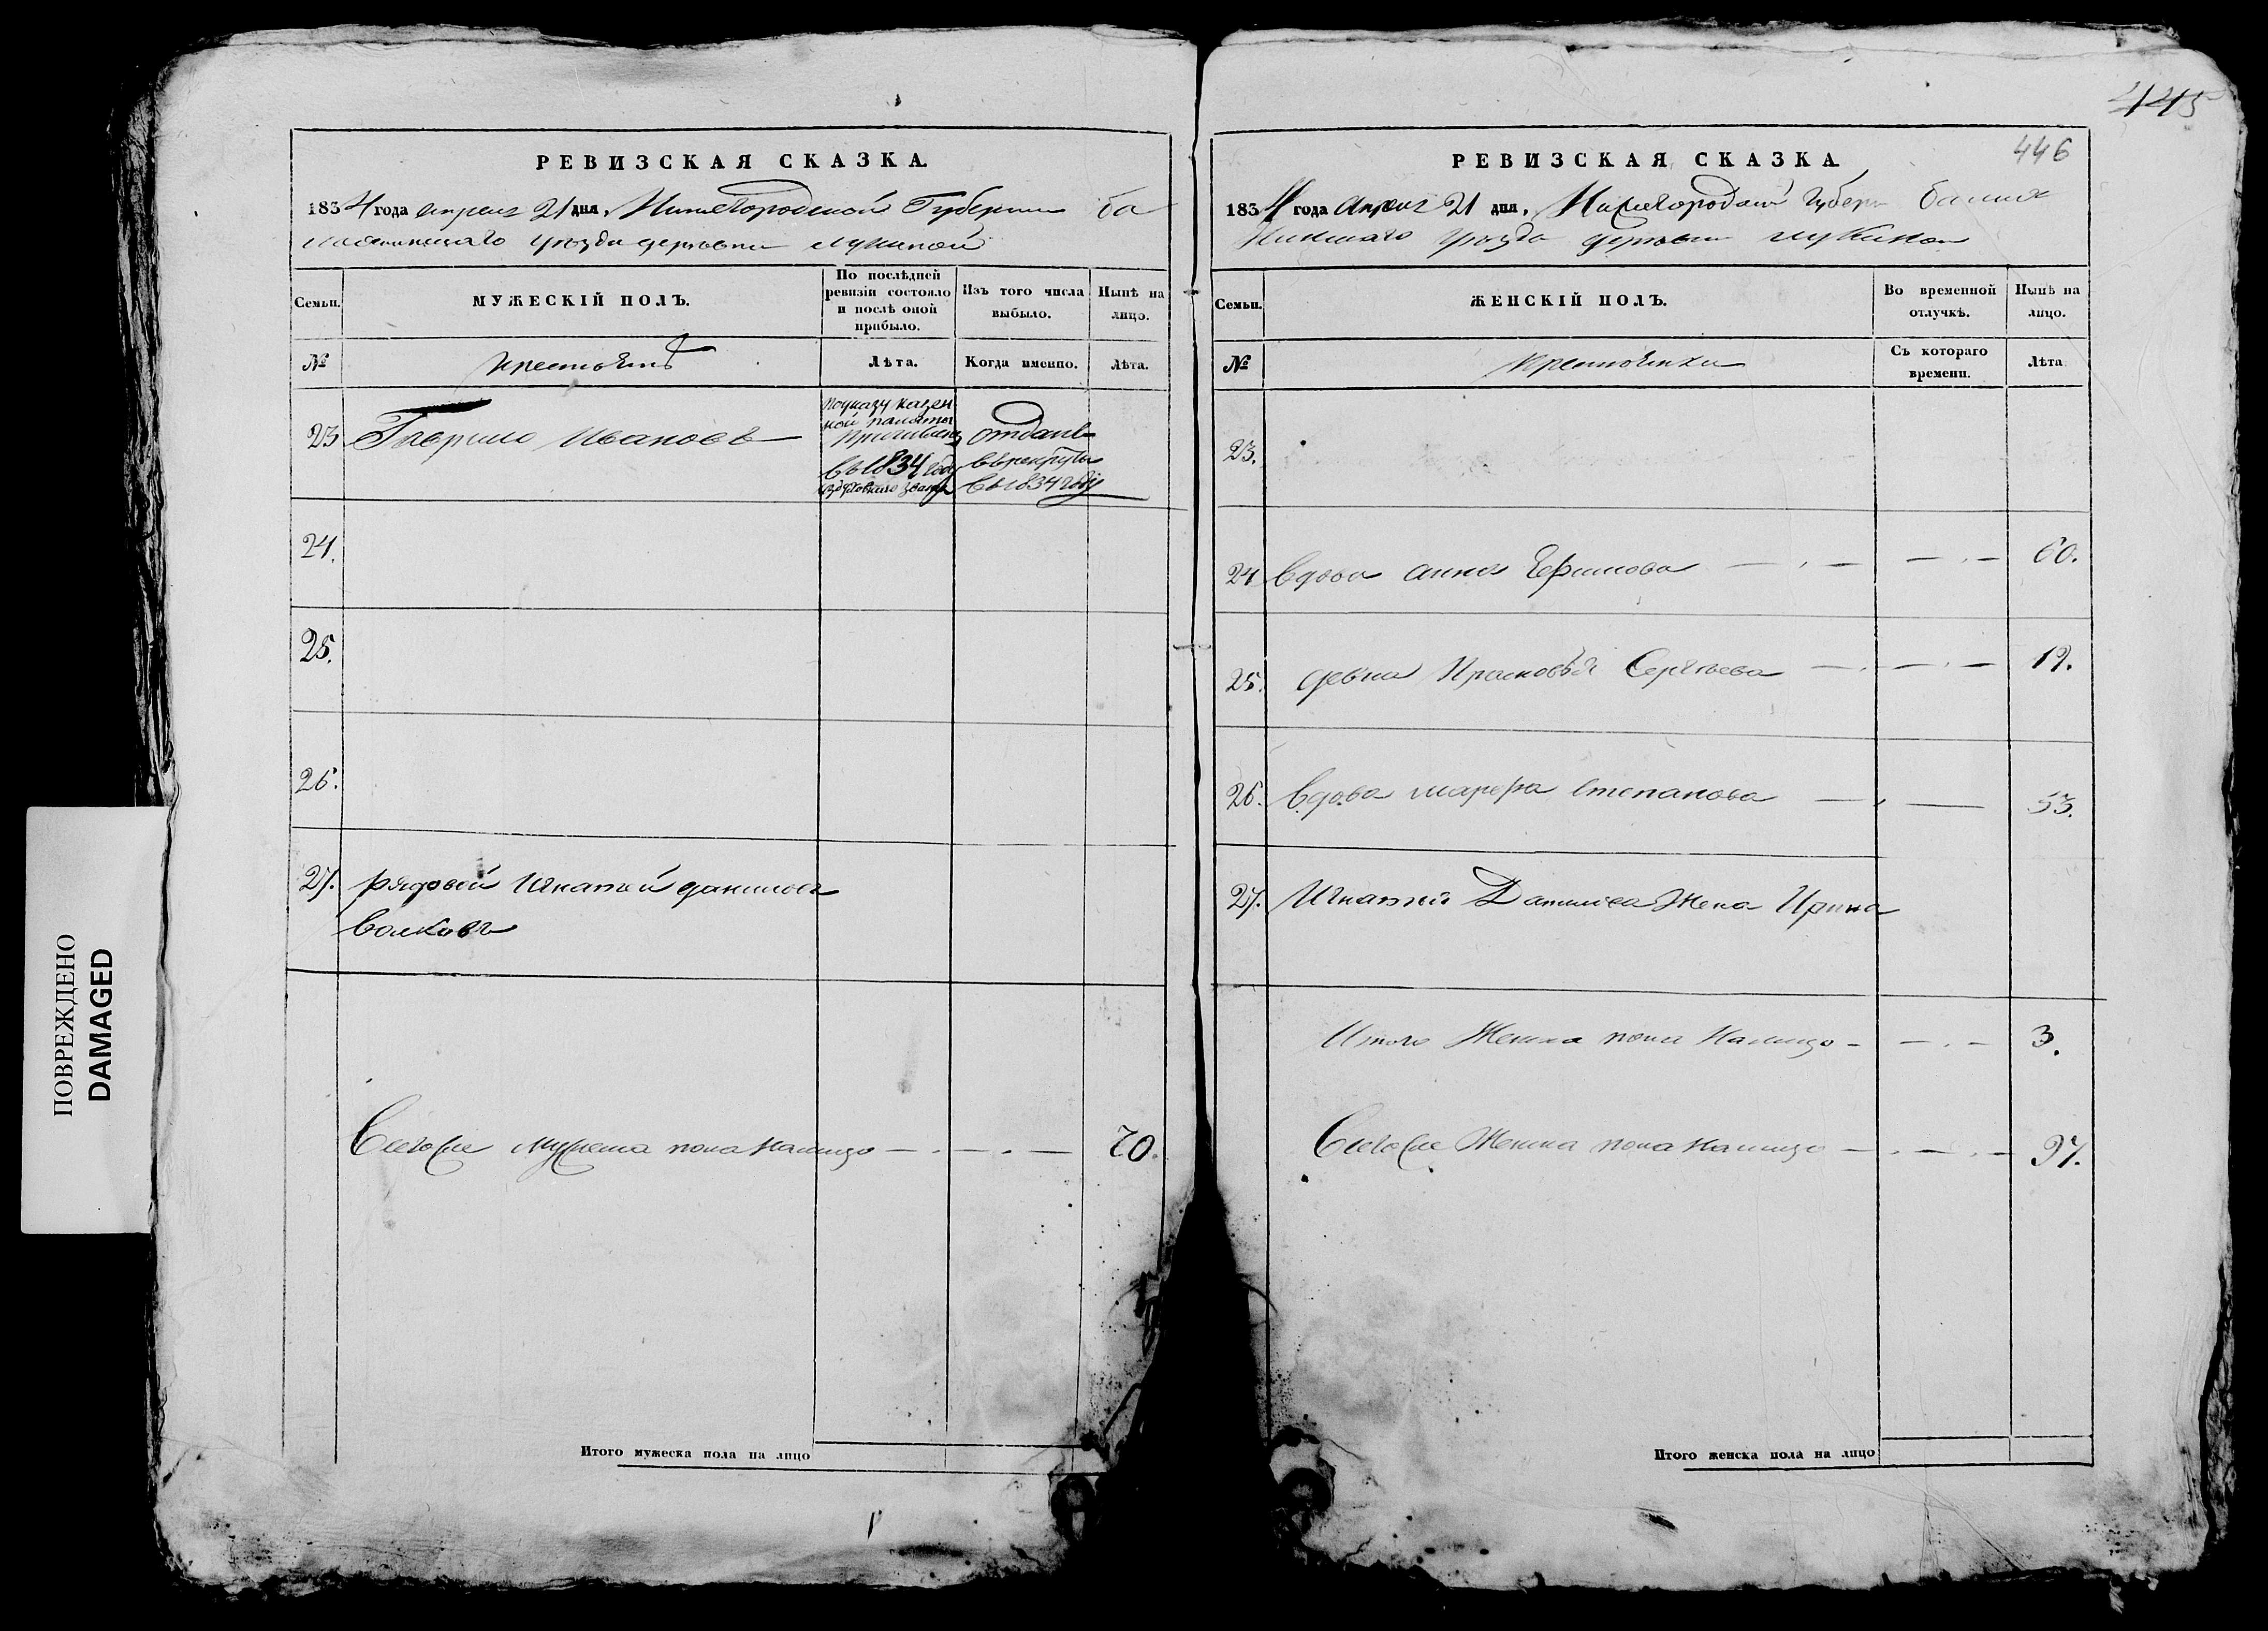 445
446
РЕВИЗСКАЯ СКАЗКА.
1834 года апреля 21 дня, Нижегородской Губернии ба
лахнинскаго уѣзда деревни лукиной
Семьи.
МУЖЕСКІЙ ПОЛЪ.
По послѣдней ревизіи состояло и послѣ оной прибыло.
Изъ того числа выбыло.
Нынѣ на лицо.
№
крестьянъ
Лѣта.
Когда именно.
Лѣта.
23 Гаврило Ивановъ
по указу казен
ной палаты
причисленъ
въ 1834 году
отданъ
въ рекруты
въ 1834 году
24.
25.
26.
27. рядовой Игнатий даниловъ
волковъ
Всего же мужеска пола налицо 70.
Итого мужеска пола на лицо
РЕВИЗСКАЯ СКАЗКА
1834 года апреля 21 дня, Нижегородской губерн балах
нинскаго уѣзда деревни лукиной
Семьи.
ЖЕНСКІЙ ПОЛЪ.
Во временной отлучкѣ.
Нынѣ на лицо.
№
крестьянки
Съ котораго времени.
Лѣта
23.
24 вдова анна Ефимова 60.
25. девка Прасковья Сергеева 19.
26. вдова марфа степанова 53.
27. Игнатия Данилова Жена Ирина
Итого Женска пола Налицо 3.
Всего же Женска пола налицо 97.
Итого женска пола на лицо
ПОВРЕЖДЕНО
DAMAGED